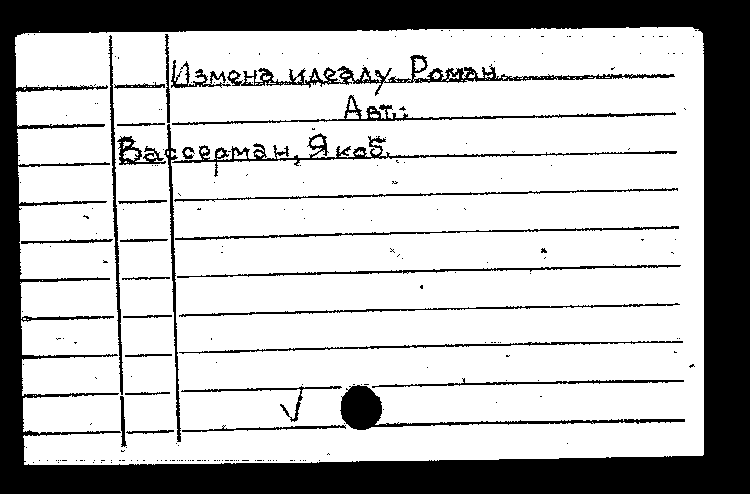 Измена идеалу. Роман.
Авт.:
Вассерман, Якоб.